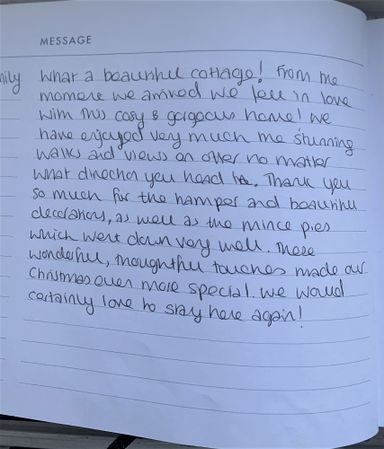 MESSAGE
mily
What a beautiful cottage! From the
moment we arrived we fell in love
with this cosy & gorgeous home! We
have enjoyed very much the stunning
walks and views on offer no matter
what direction you head in. Thank you
so much for the hamper and beautiful
decorations, as well as the mince pies
which went down very well. These
wonderful, thoughtful touches made our
Christmas even more special. We would
certainly love to stay here again!